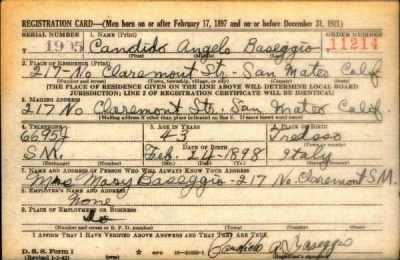 REGISTRATION CARD—(Men born on or after February 17, 1897 and on or before December 31, 1921)
SERIAL NUMBER 1. NAME (Print) ORDER NUMBER
1905 Candido Angelo Baseggio 11214
(First) (Middle) (Last)
2. PLACE OF RESIDENCE (Print)
217-No Claremont Str. San Mateo Calif
(Number and street) (Town, township, village, or city) (County) (State)
[THE PLACE OF RESIDENCE GIVEN ON THE LINE ABOVE WILL DETERMINE LOCAL BOARD
JURISDICTION; LINE 2 OF REGISTRATION CERTIFICATE WILL BE IDENTICAL]
3. MAILING ADDRESS
217 No Claremont Str. San Mateo Calif.
[Mailing address if other than place indicated on line 2. If same insert word same]
4. TELEPHONE 5. AGE IN YEARS 6. PLACE OF BIRTH
6695J 43
DATE OF BIRTH
S.M. Feb. 24-1898 Italy
(Exchange) (Number) (Mo.) (Day) (Yr.) (State or country)
7. NAME AND ADDRESS OF PERSON WHO WILL ALWAYS KNOW YOUR ADDRESS
Mrs Mary Baseggio-217 No. Claremont S.M.
8. EMPLOYER'S NAME AND ADDRESS
None
9. PLACE OF EMPLOYMENT OR BUSINESS
(Number and street or R. F. D. number) (Town) (County) (State)
I AFFIRM THAT I HAVE VERIFIED ABOVE ANSWERS AND THAT THEY ARE TRUE.
D. S. S. Form 1
Candido A. Baseggio